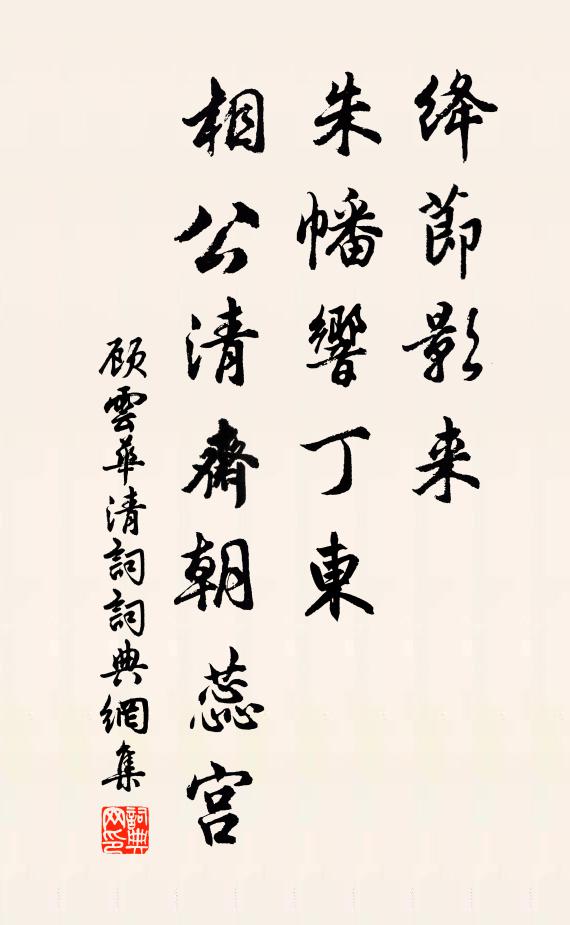 绛節影来
朱幡響丁東
相公清齋朝蕊宫
顧雲華清詞詞典網集
詞典
网印